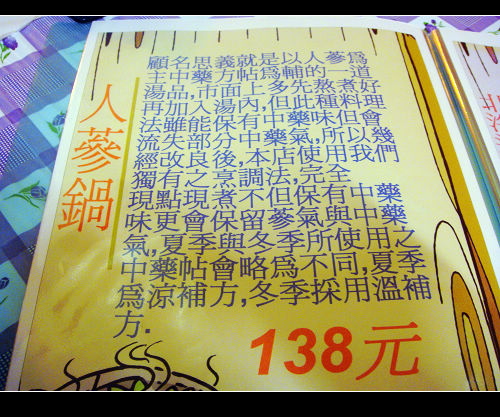 人蔘鍋
顧名思義就是以人蔘爲
主中藥方帖爲輔的一道
湯品,市面上多先熬煮好
再加入湯內,但此種料理
法雖能保有中藥味但會
流失部分中藥氣,所以幾
經改良後,本店使用我們
獨有之烹調法,完全
現點現煮不但保有中藥
味更會保留蔘氣與中藥
氣,夏季與冬季所使用之
中藥帖會略爲不同,夏季
爲涼補方,冬季採用溫補
方.
138元